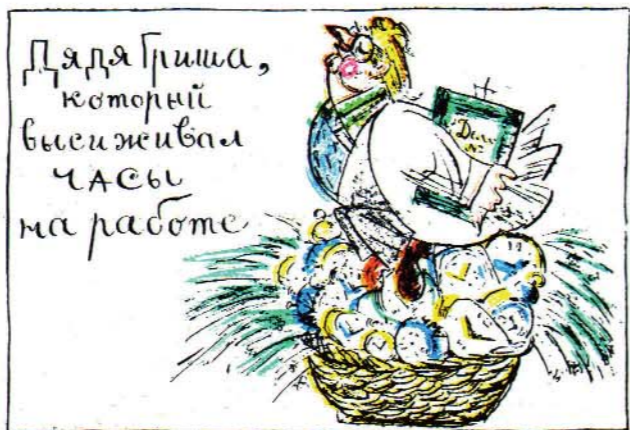 Дядя Гриша,
который
высиживал
ЧАСЫ
на работе
"Дело
№"